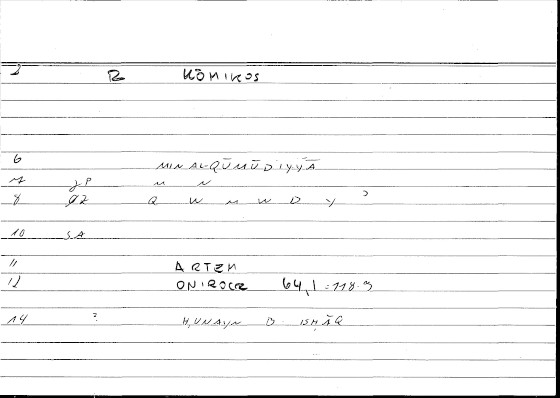 2 R KŌMIKOS
6 MIN AL-QŪMŪDIYYĀ
7 JP M N
8 QZ Q W M W D Y ʾ
10 SA
11 ARTEM
12 ONIROCR 64,1 = 118.3
14 ? ḤUNAYN B ISḤĀQ